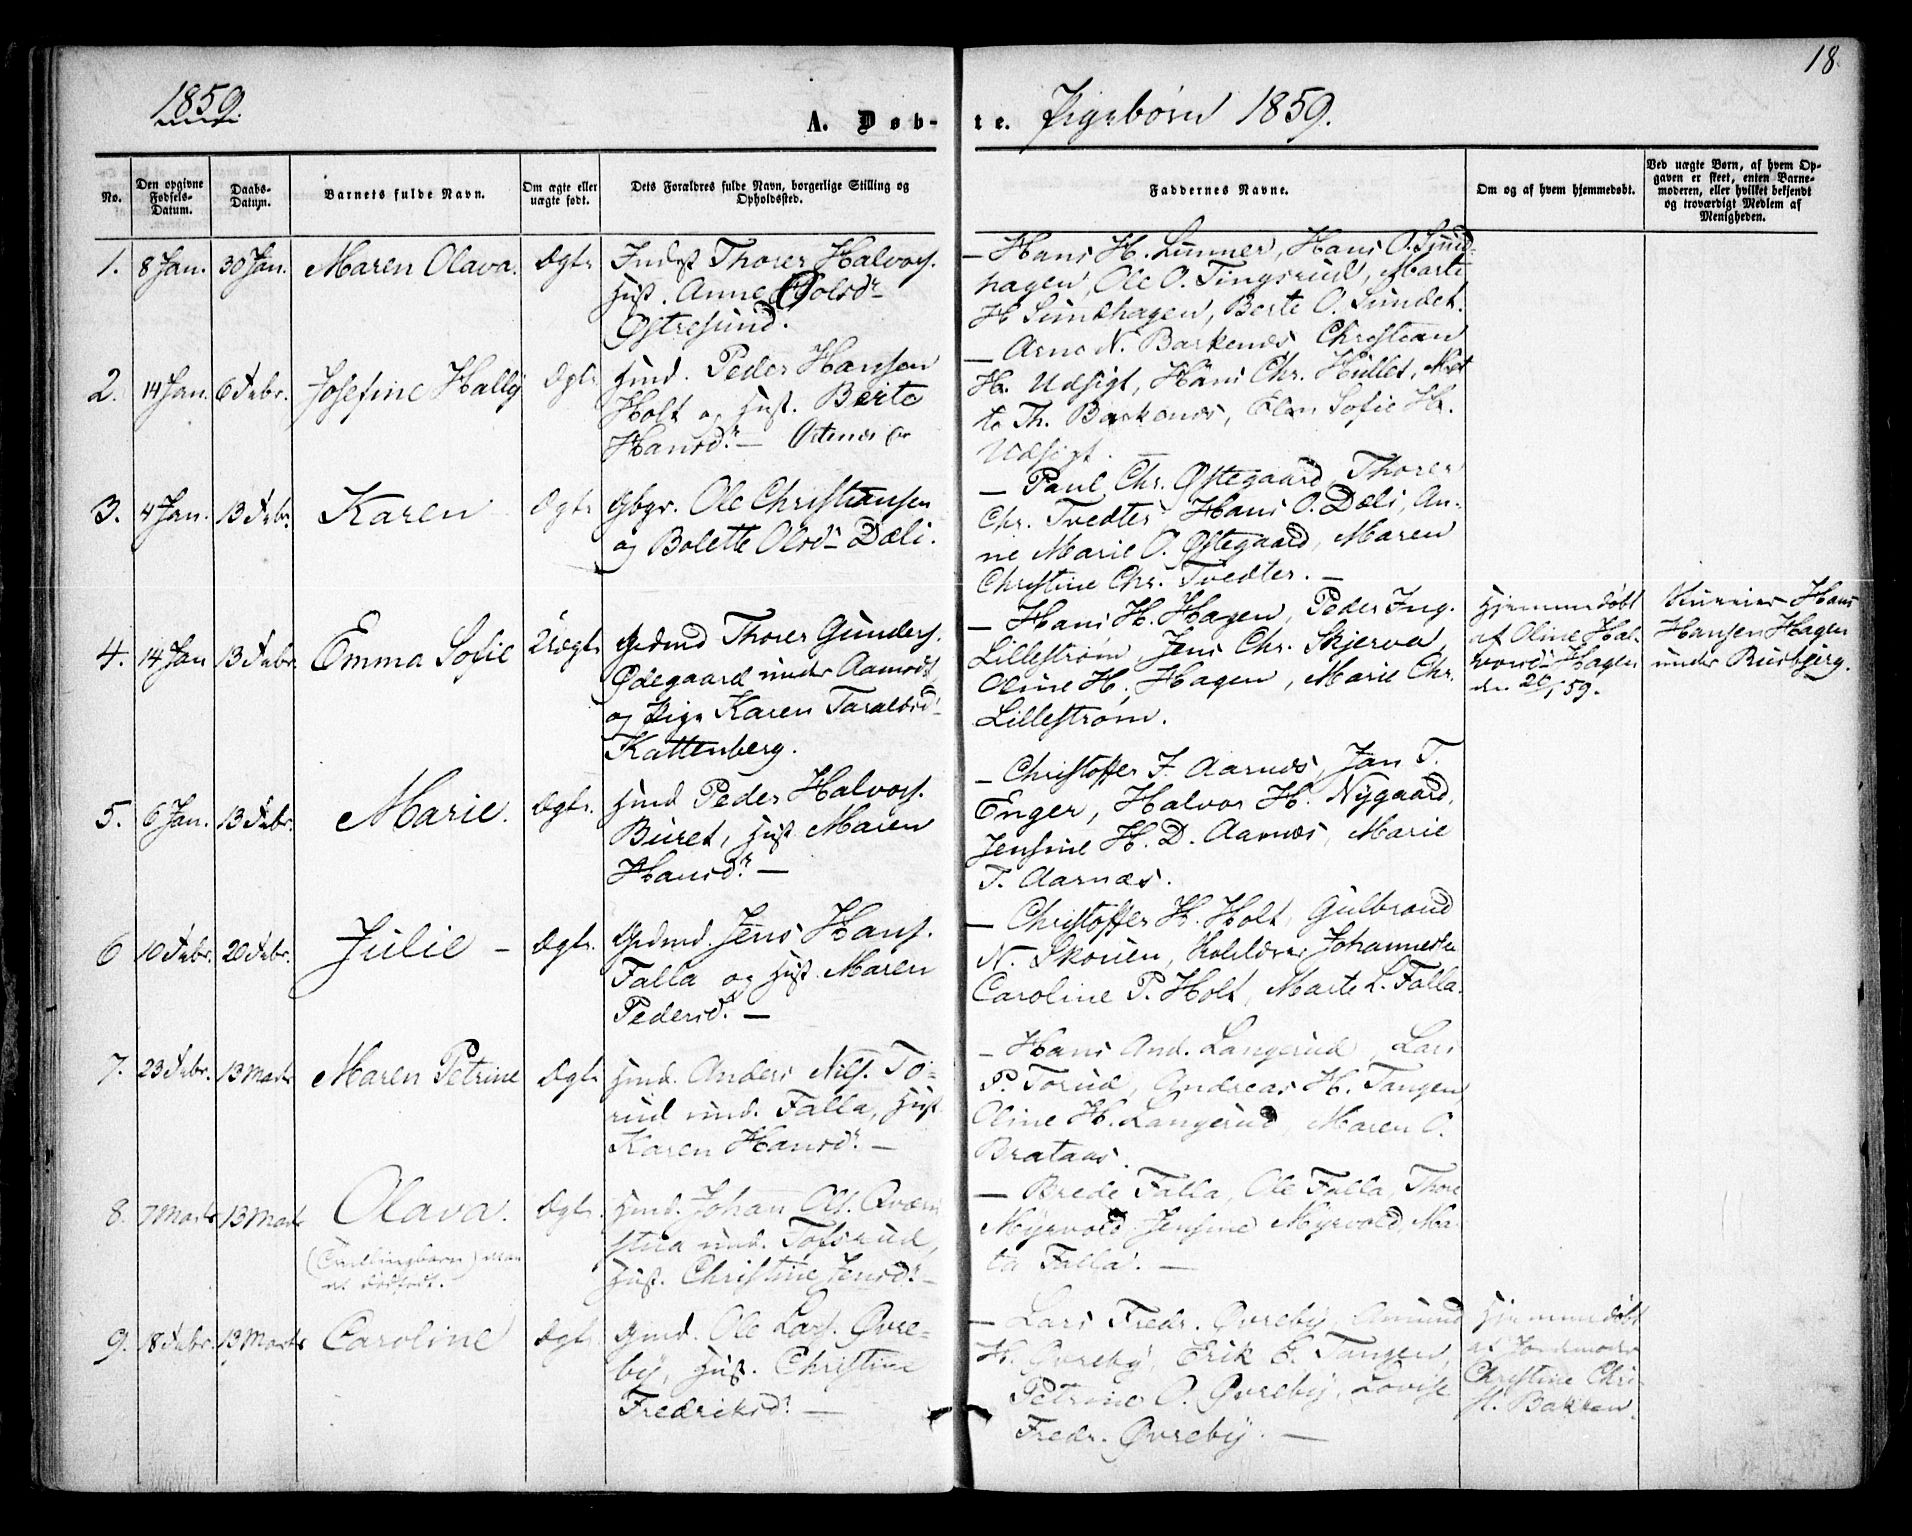 1859.
18
A. Døb-te. Pigebørn 1859.
No.
Den opgivne Fødsels-Datum.
Daabs-Datum.
Barnets fulde Navn.
Om ægte eller uægte født.
Dets Forældres fulde Navn, borgerlige Stilling og Opholdssted.
Faddernes Navne.
Om og af hvem hjemmedøbt.
Ved uægte Børn, af hvem Opgaven er skeet, enten Barnemoderen, eller hvilket bekjendt og troværdigt Medlem af Menigheden.
1. 8 Jan. 30 Jan. Maren Olava. Ægte
Inderst Thorer Halvors.
Hust. Anne Olsdr
Østresund.
– Hans H. Linner, Hans O. Sund-
hagen, Ole O. Tingsrud, Marte
H Sundhagen, Berte O. Sundet.
2. 14 Jan. 6 Febr. Josefine Hally Ægte
Hmd. Peder Hansen
Holt og Hust. Berte
Hansdr –
– Arne N. Barkenæs Christian
H. Udsigt, Hans Chr. Hullet, Met
te Th. Barkenæs, Elen Sofie H.
Udsigt.
3. 4 Jan. 13 Febr. Karen Ægte
Gbgr. Ole Christiansen
og Bolette Olsdr Dæli.
– Paul Chr. Østegaard Thorer
Chr. Tvedter, Hans O. Dæli, An-
ne Marie O. Østegaard, Maren
Christine Chr. Tvedter. –
4. 14 Jan 13 Febr. Emma Sofie Uægte
Grdmd Thorer Gunders.
Ødegaard under Aamodt,
og Pige Karen Taraldsd.
Kattenberg.
– Hans H. Hagen, Peder Ing.
Lillestrøm, Jens Chr. Skjerva,
Oline H. Hagen, Marie Chr.
Lillestrøm.
Hjemmedøbt
af Oline Hal-
vorsdr Hagen
d. 20/1 59.
Hans
Hansen Hagen
under Rusbjerg.
5. 6 Jan. 13 Febr. Marie. Ægte.
Hmd Peder Halvors.
Buret, Hust Maren
Hansdr. –
– Christoffer J. Aarnæs, Jan T.
Enger, Halvor H. Nygaard,
Jensine H. D. Aarnæs, Marie
T. Aarnæs.
6 10 Febr. 20 Febr. Julie – Ægte.
Grdmd. Jens Hans.
Falla og Hust. Maren
Pedersd. –
– Christoffer H. Holt, Gulbrand
N. Skouen, Johanneste
Caroline P. Holt, Marte L. Falla.
7. 23 Febr. 13 Marts Maren Petrine Ægte
Hmd. Anders Nils. To-
rud und. Falla, Hust
Karen Hansdr. –
– Hans And. Langerud, Lars
P. Torud, Andreas H. Tangen,
Oline H. Langerud, Maren O.
Brataas.
8. 7 Marts 13 Marts Olava. Ægte.
(Tvillingbarn)
et dødfødt.
Hmd. Johan Ols. Qværn
stua und. Tofsrud,
Hust. Christine Jensdr. –
– Brede Falla, Ole Falla, Thore
Myrvold, Jensine Myrvold, Ma-
ta Falla. –
9. 18 Febr. 13 Marts Caroline Ægte.
Ole Lars. Øvre-
by, Hust. Christine
Fredriksdr. –
– Lars Fredr. Øvreby, Amund
H. Øvreby, Erik E. Tangen,
Petrine O. Øvreby, Lovise
Fredr. Øvreby. –
Hjemmedøbt
af Jordemoder
Christine Chri-
st. Bakken.